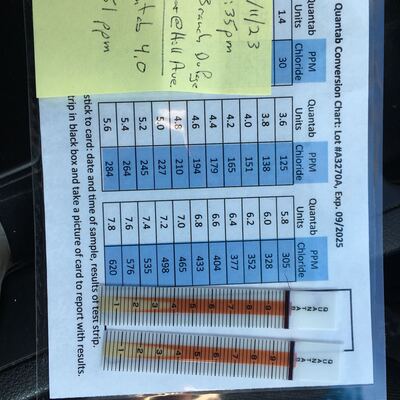 Quantab Conversion Chart: Lot #A3270A, Exp. 09/2025
Quantab PPM Quantab PPM Quantab PPM
Units Chloride Units Chloride Units Chloride
1.4 30 3.6 125 5.8 305
3.8 138 6.0 328
4.0 151 6.2 352
4.2 165 6.4 377
4.4 179 6.6 404
4.6 194 6.8 433
4.8 210 7.0 465
5.0 227 7.2 498
5.2 245 7.4 535
5.4 264 7.6 576
5.6 284 7.8 620
/11/23
:35pm
Branch, DuPage
@ Hill Ave.
4.0
51 ppm
stick to card: date and time of sample, results of test strip.
trip in black box and take a picture of card to report with results.
QUANTAB
9
8
7
6
5
4
3
2
1
QUANTAB
9
8
7
6
5
4
3
2
1